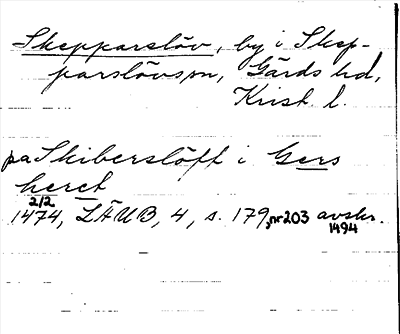 Skepparslöv, by i Skep-
parslövs sn, Gärds hd,
Krist. l.
på Skiberslöff i Gers
heret
2/2
1474, LÄUB, 4, s. 179, nr 203 avskr.
1494